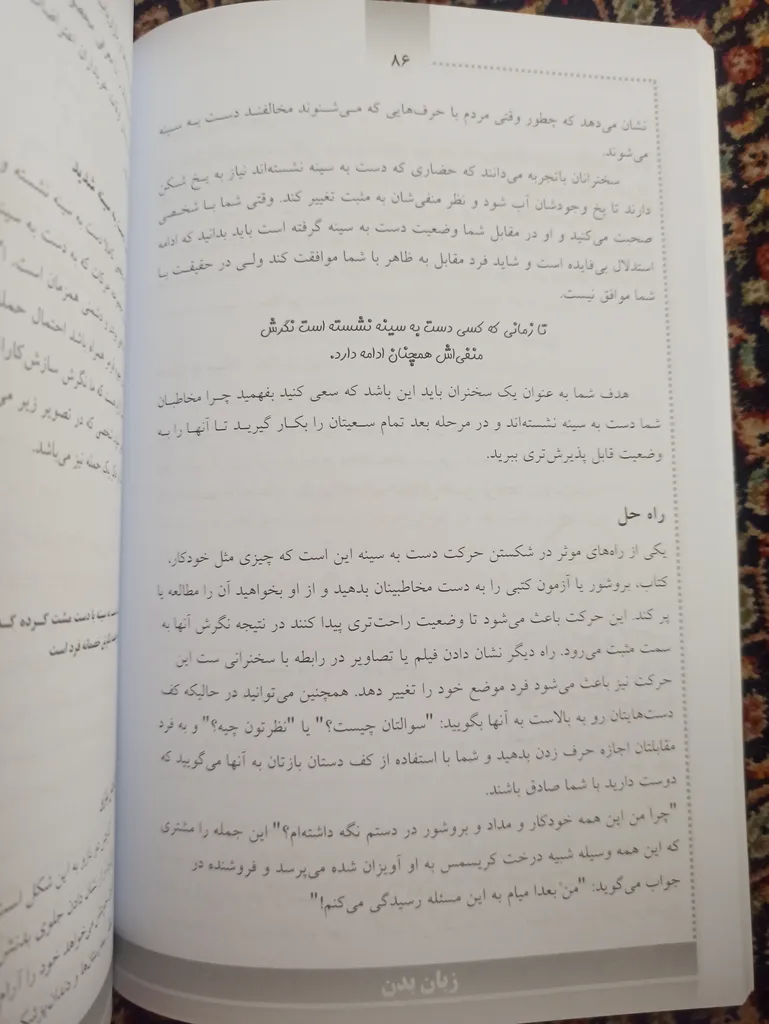 ۸۶
نشان می‌دهد که چطور وقتی مردم با حرف‌هایی که می‌شنوند مخالفند دست به سینه
می‌شوند.
سخنرانان باتجربه می‌دانند که حضاری که دست به سینه نشسته‌اند نیاز به یخ شکن
دارند تا یخ وجودشان آب شود و نظر منفی‌شان به مثبت تغییر کند. وقتی شما با شخصی
صحبت می‌کنید و او در مقابل شما وضعیت دست به سینه گرفته است باید بدانید که ادامه
استدلال بی‌فایده است و شاید فرد مقابل به ظاهر با شما موافقت کند ولی در حقیقت با
شما موافق نیست.
تا زمانی که کسی دست به سینه نشسته است نگرش
منفی‌اش همچنان ادامه دارد.
هدف شما به عنوان یک سخنران باید این باشد که سعی کنید بفهمید چرا مخاطبان
شما دست به سینه نشسته‌اند و در مرحله بعد تمام سعیتان را بکار گیرید تا آنها را به
وضعیت قابل پذیرش‌تری ببرید.
راه حل
یکی از راه‌های موثر در شکستن حرکت دست به سینه این است که چیزی مثل خودکار،
کتاب، بروشور یا آزمون کتبی را به دست مخاطبینان بدهید و از او بخواهید آن را مطالعه یا
پر کند. این حرکت باعث می‌شود تا وضعیت راحت‌تری پیدا کنند در نتیجه نگرش آنها به
سمت مثبت می‌رود. راه دیگر نشان دادن فیلم یا تصاویر در رابطه با سخنرانی ست این
حرکت نیز باعث می‌شود فرد موضع خود را تغییر دهد. همچنین می‌توانید در حالیکه کف
دست‌هایتان رو به بالاست به آنها بگویید: "سوالتان چیست؟" یا "نظرتون چیه؟" و به فرد
مقابلتان اجازه حرف زدن بدهید و شما با استفاده از کف دستان بازتان به آنها می‌گویید که
دوست دارید با شما صادق باشند.
"چرا من این همه خودکار و مداد و بروشور در دستم نگه داشته‌ام؟" این جمله را مشتری
که این همه وسیله شبیه درخت کریسمس به او آویزان شده می‌پرسد و فروشنده در
جواب می‌گوید: "من بعدا میام به این مسئله رسیدگی می‌کنم!"
زبان بدن